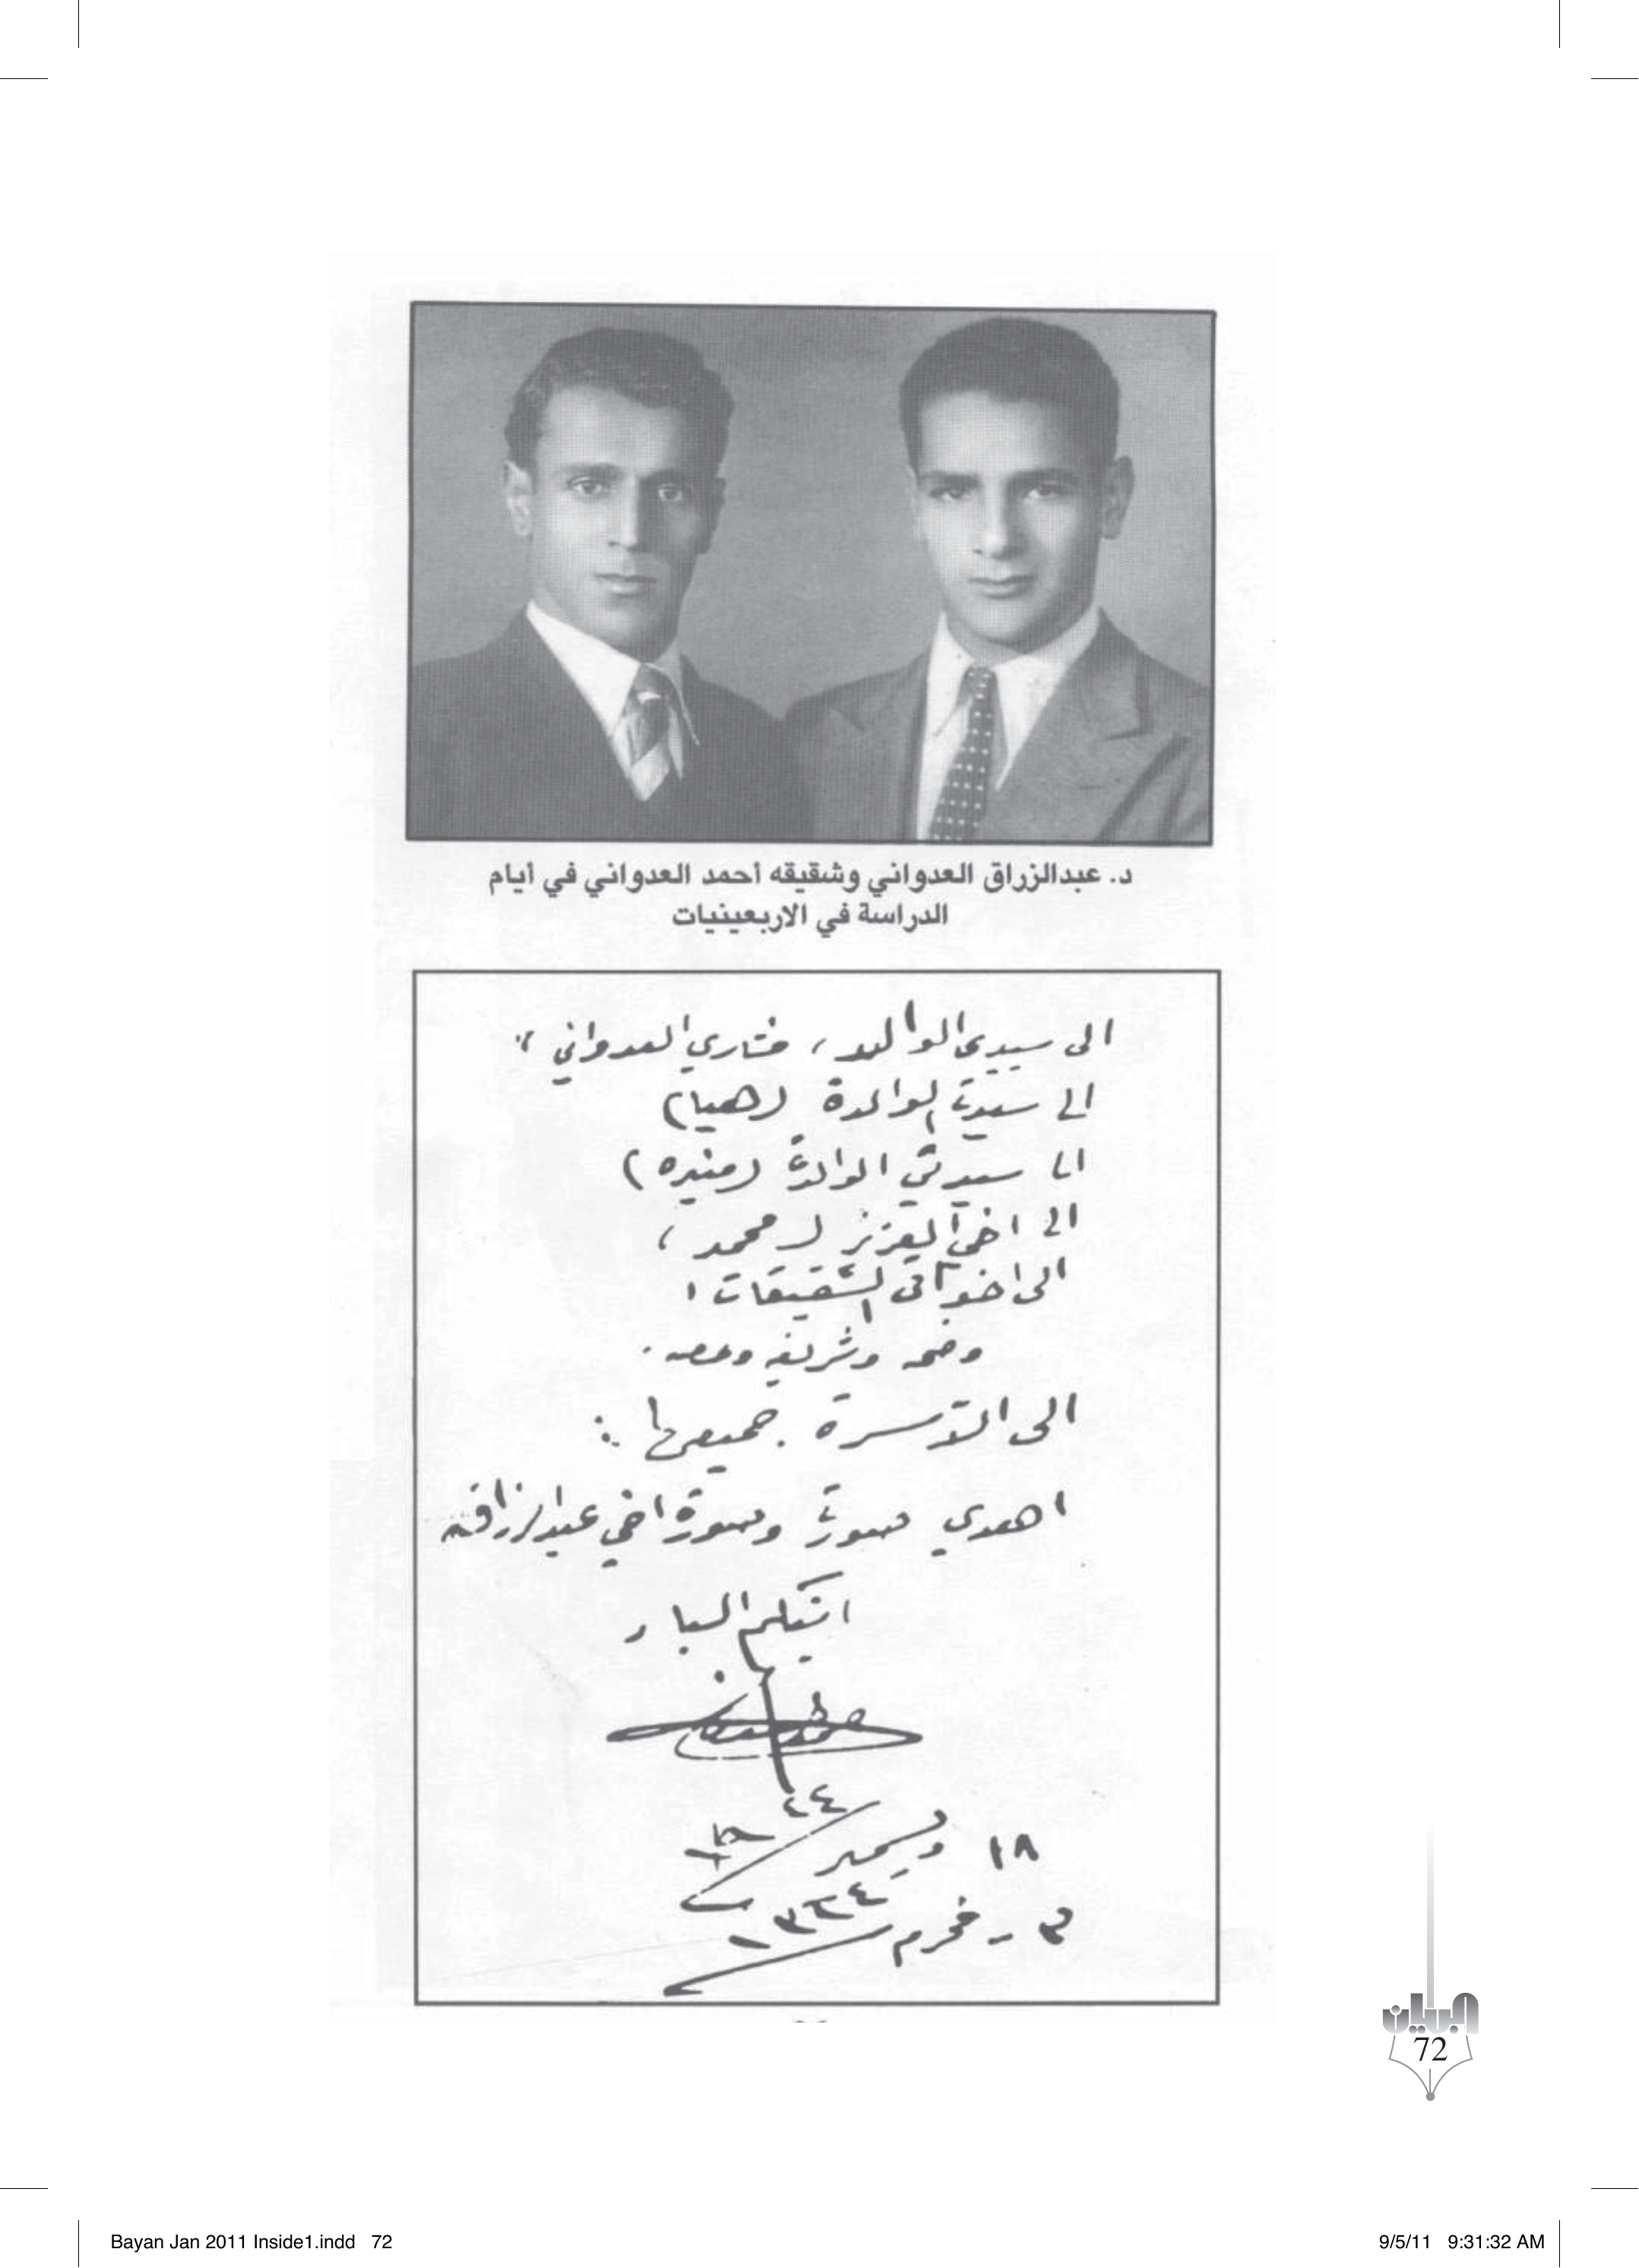 د. عبدالزراق العدواني وشقيقه أحمد العدواني في أيام
الدراسة في الاربعينيات
الى سيدي الوالد، مشاري العدواني
الى سيدتي الوالدة (هيا)
الى سيدتي الوالدة (منيره)
الى اخي العزيز (محمد)
الى اخواتي الشقيقات
وضحه وشريفه وحصه.
الى الأسرة جميعها:
اهدي صورتي وصورة اخي عبدالرزاق
ابنكم البار
١٨ ديسمبر
٣ - محرم ١٣٦٤
البيان
72
Bayan Jan 2011 Inside1.indd 72
9/5/11 9:31:32 AM